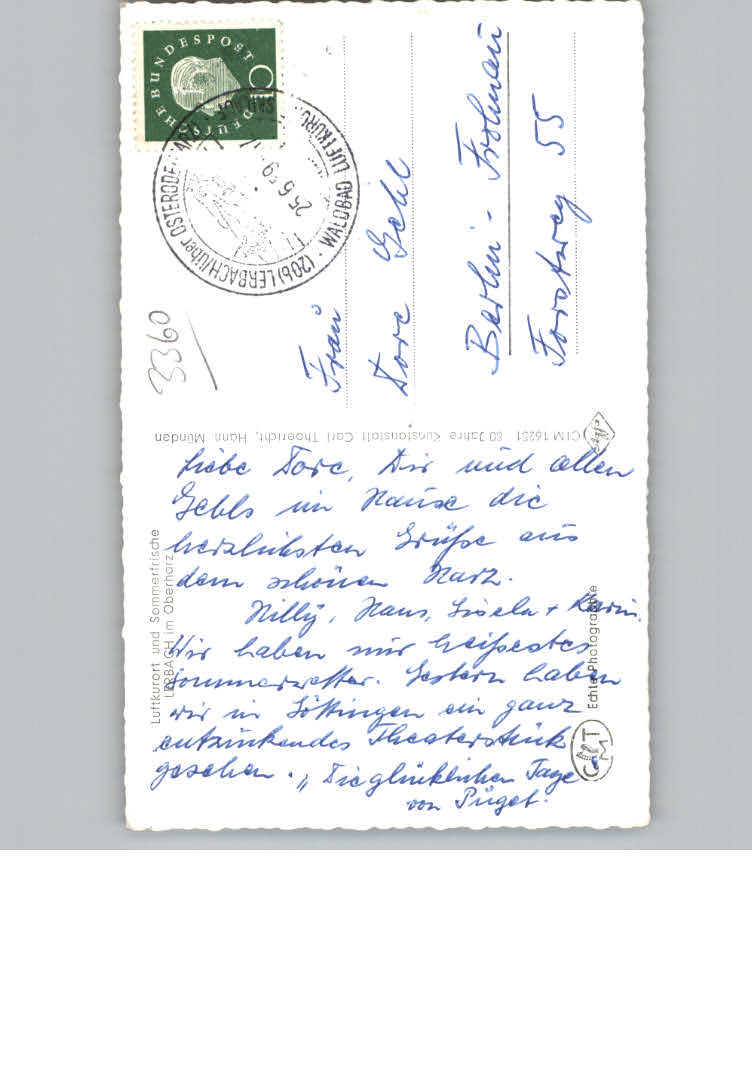 DEUTSCHE BUNDESPOST
10
(20b) LERBACH über OSTERODE HARZ
WALDBAD LUFTKURORT
25.6.59
3360
Frau
Dore Gehl
Berlin - Frohnau
Forstweg 55
CTM 16251 80 Jahre Kunstanstalt Carl Thoericht, Hann. Münden
Luftkurort und Sommerfrische
LERBACH im Oberharz
Liebe Dore, Dir und allen
Gehls im Hause die
herzlichsten Grüße aus
dem schönen Harz.
Hans, Gisela + Karin.
Wir haben nur heißestes
Sommerwetter. Gestern haben
wir in Göttingen ein ganz
entzückendes Theaterstück
gesehen. „Die glücklichen Tage
von Püget.
Echte Photographie
CTM